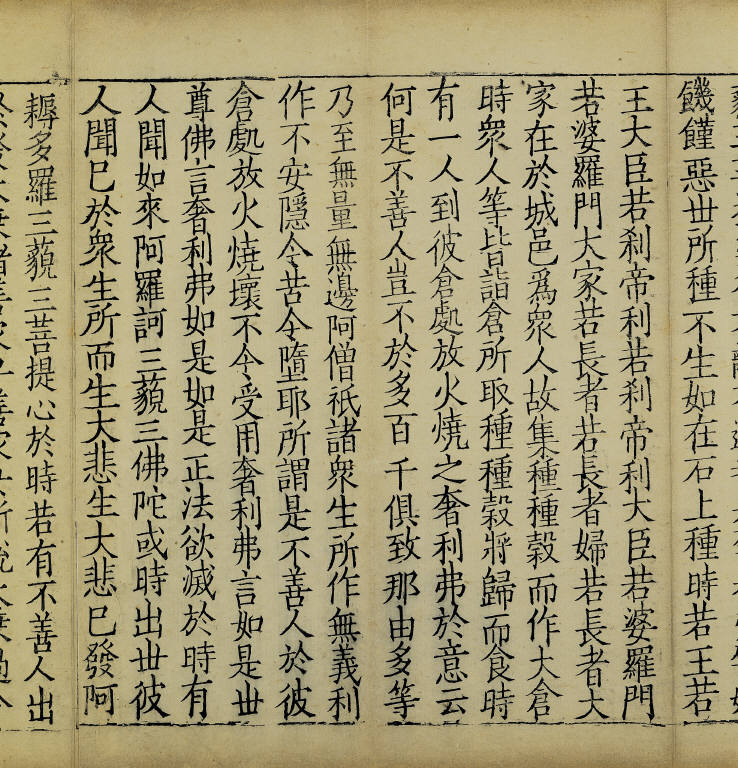 饑饉惡世所種不生如在石上種時若王若
王大臣若刹帝利若刹帝利大臣若婆羅門
若婆羅門大家若長者若長者婦若長者大
家在於城邑爲衆人故集種種穀而作大倉
時衆人等皆詣倉所取種種穀將歸而食時
有一人到彼倉處放火燒之奢利弗於意云
何是不善人豈不於多百千俱致那由多等
乃至無量無邊阿僧祇諸衆生所作無義利
作不安隱令苦令墮耶所謂是不善人於彼
倉處放火燒壞不令受用奢利弗言如是世
尊佛言奢利弗如是如是正法欲滅於時有
人聞如來阿羅訶三藐三佛陀或時出世彼
人聞已於衆生所而生大悲生大悲已發阿
耨多羅三藐三菩提心於時若有不善人出